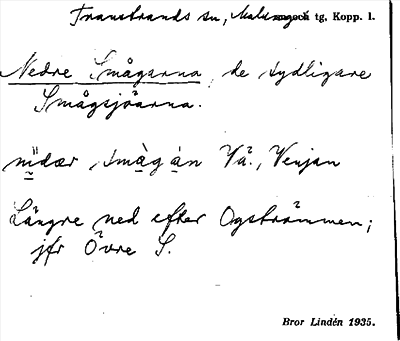 Transtrands sn, Malungs tg, Kopp. l.
Nedre Smågarna, de sydligare
Smågsjöarna.
nìdær smàgàn Yä., Venjan
Längre ned efter Ogströmmen;
jfr Övre S.
Bror Lindén 1935.